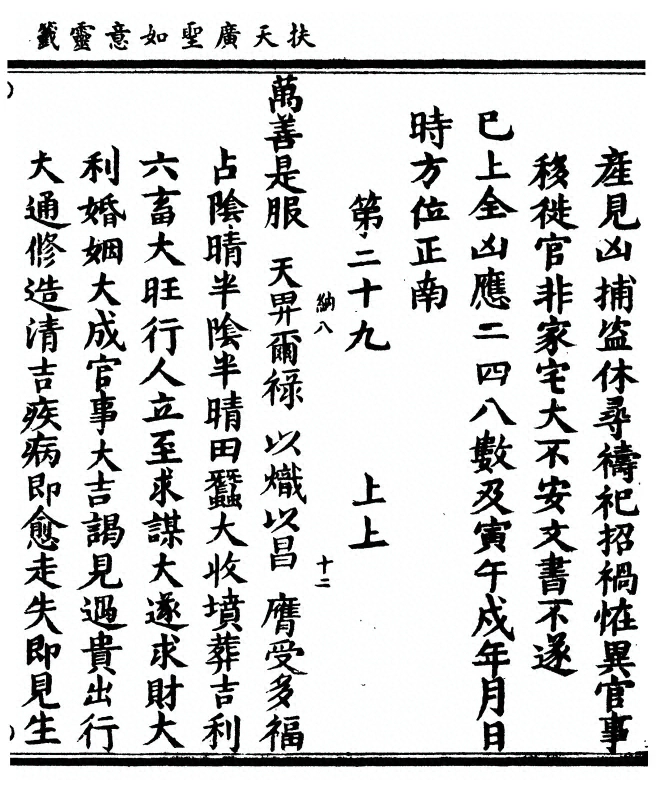 扶天廣聖如意靈籤
產見凶捕盜休尋禱祀招禍怪異官事
移徙官非家宅大不安文書不遂
已上全凶應二四八數及寅午戌年月日
時方位正南
第二十九 上上
納八 十二
萬善是服 天畀爾祿 以熾以昌 膺受多福
占陰晴半陰半晴田蠶大收墳葬吉利
六畜大旺行人立至求謀大遂求財大
利婚姻大成官事大吉謁見遇貴出行
大通修造清吉疾病即愈走失即見生